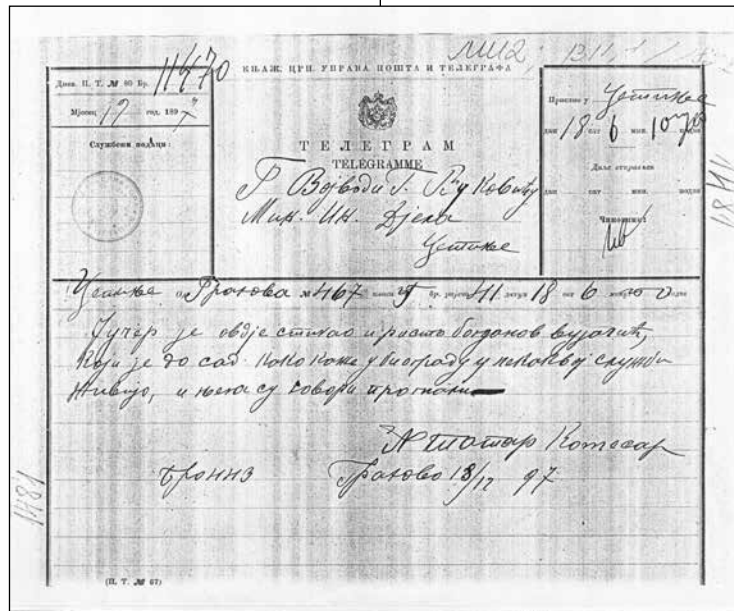 МИД
КЊАЖ. ЦРН. УПРАВА ПОШТА И ТЕЛЕГРАФА
Днев. П. Т. № 80 Бр. 11470
Мјесец 12 год. 1897
Службени подаци:
ТЕЛЕГРАМ
TELEGRAMME
Г Војводи Г. Вуковићу
Мин. Ин. Дјела
Цетиње
Приспио у Цетиње
дан 18 сат 6 мин. 10 подне
Даље отправљен
дан сат мин. подне
Чиновник
1481
Цетиње Од Грахова № 467 бр. ријечи 41 датум 18 сат 6 подне
Јучер је овдје стигао и ристо богданов вујачић,
који је до сад како каже у биограду у некаквој служби
живио, и њега су говори прогнали
Комесар
Броj 113 Грахово 18/12 97
1481
(П. Т. № 67)